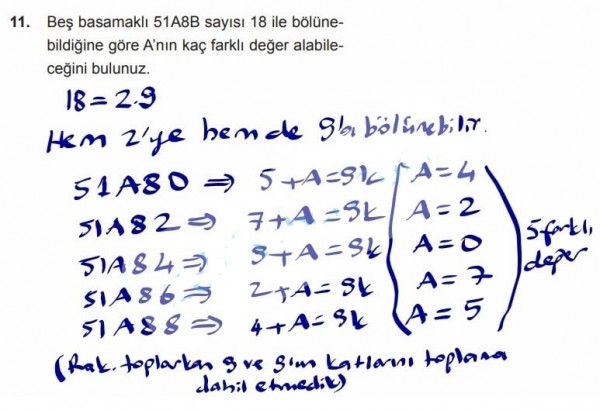 11. Beş basamaklı 51A8B sayısı 18 ile bölüne-
bildiğine göre A'nın kaç farklı değer alabile-
ceğini bulunuz.
18 = 2.9
Hem 2'ye hem de 9'a bölünebilir.
51A80 ⇒ 5+A=9k A=4
51A82 ⇒ 7+A=9k A=2
51A84 ⇒ 9+A=9k A=0
51A86 ⇒ 2+A=9k A=7
51A88 ⇒ 4+A=9k A=5
5 farklı
değer
(Rak. toplarken 9 ve 9'un katlarını toplama
dahil etmedik)